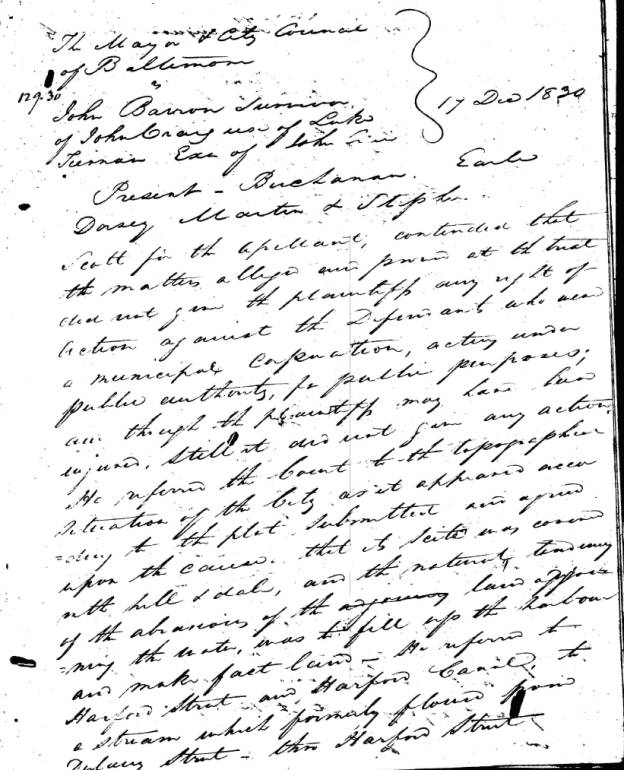 The Mayor & City Council
of Baltimore
vs
129.30
John Barron Survivor
of John Craig use of Luke
Tiernan Exr of John
17 Dec 1830
Present - Buchanan. Earle
Dorsey Martin & Stephen.
Scott for the Apellant, contended that
the matters alleged and proved at the trial
did not give the plaintiffs any right of
Action against the Defendants who were
a municipal Corporation, acting under
public authority, for public purposes;
and though the plaintiff may have been
injured, still it did not give any action.
He referred the Court to the topographical
situation of the City as it appeared accor
=ding to the plot submitted and agreed
upon the cause. that its scite was covered
with hill & dale, and the natural tendency
of the abrasions of the adjoining land appro
=ning the water, was to fill up the harbour
and make fast land - He referred to
Harford Street and Harford Canal, to
a stream which formerly flowed from
Dulany Street - thro Harford Street